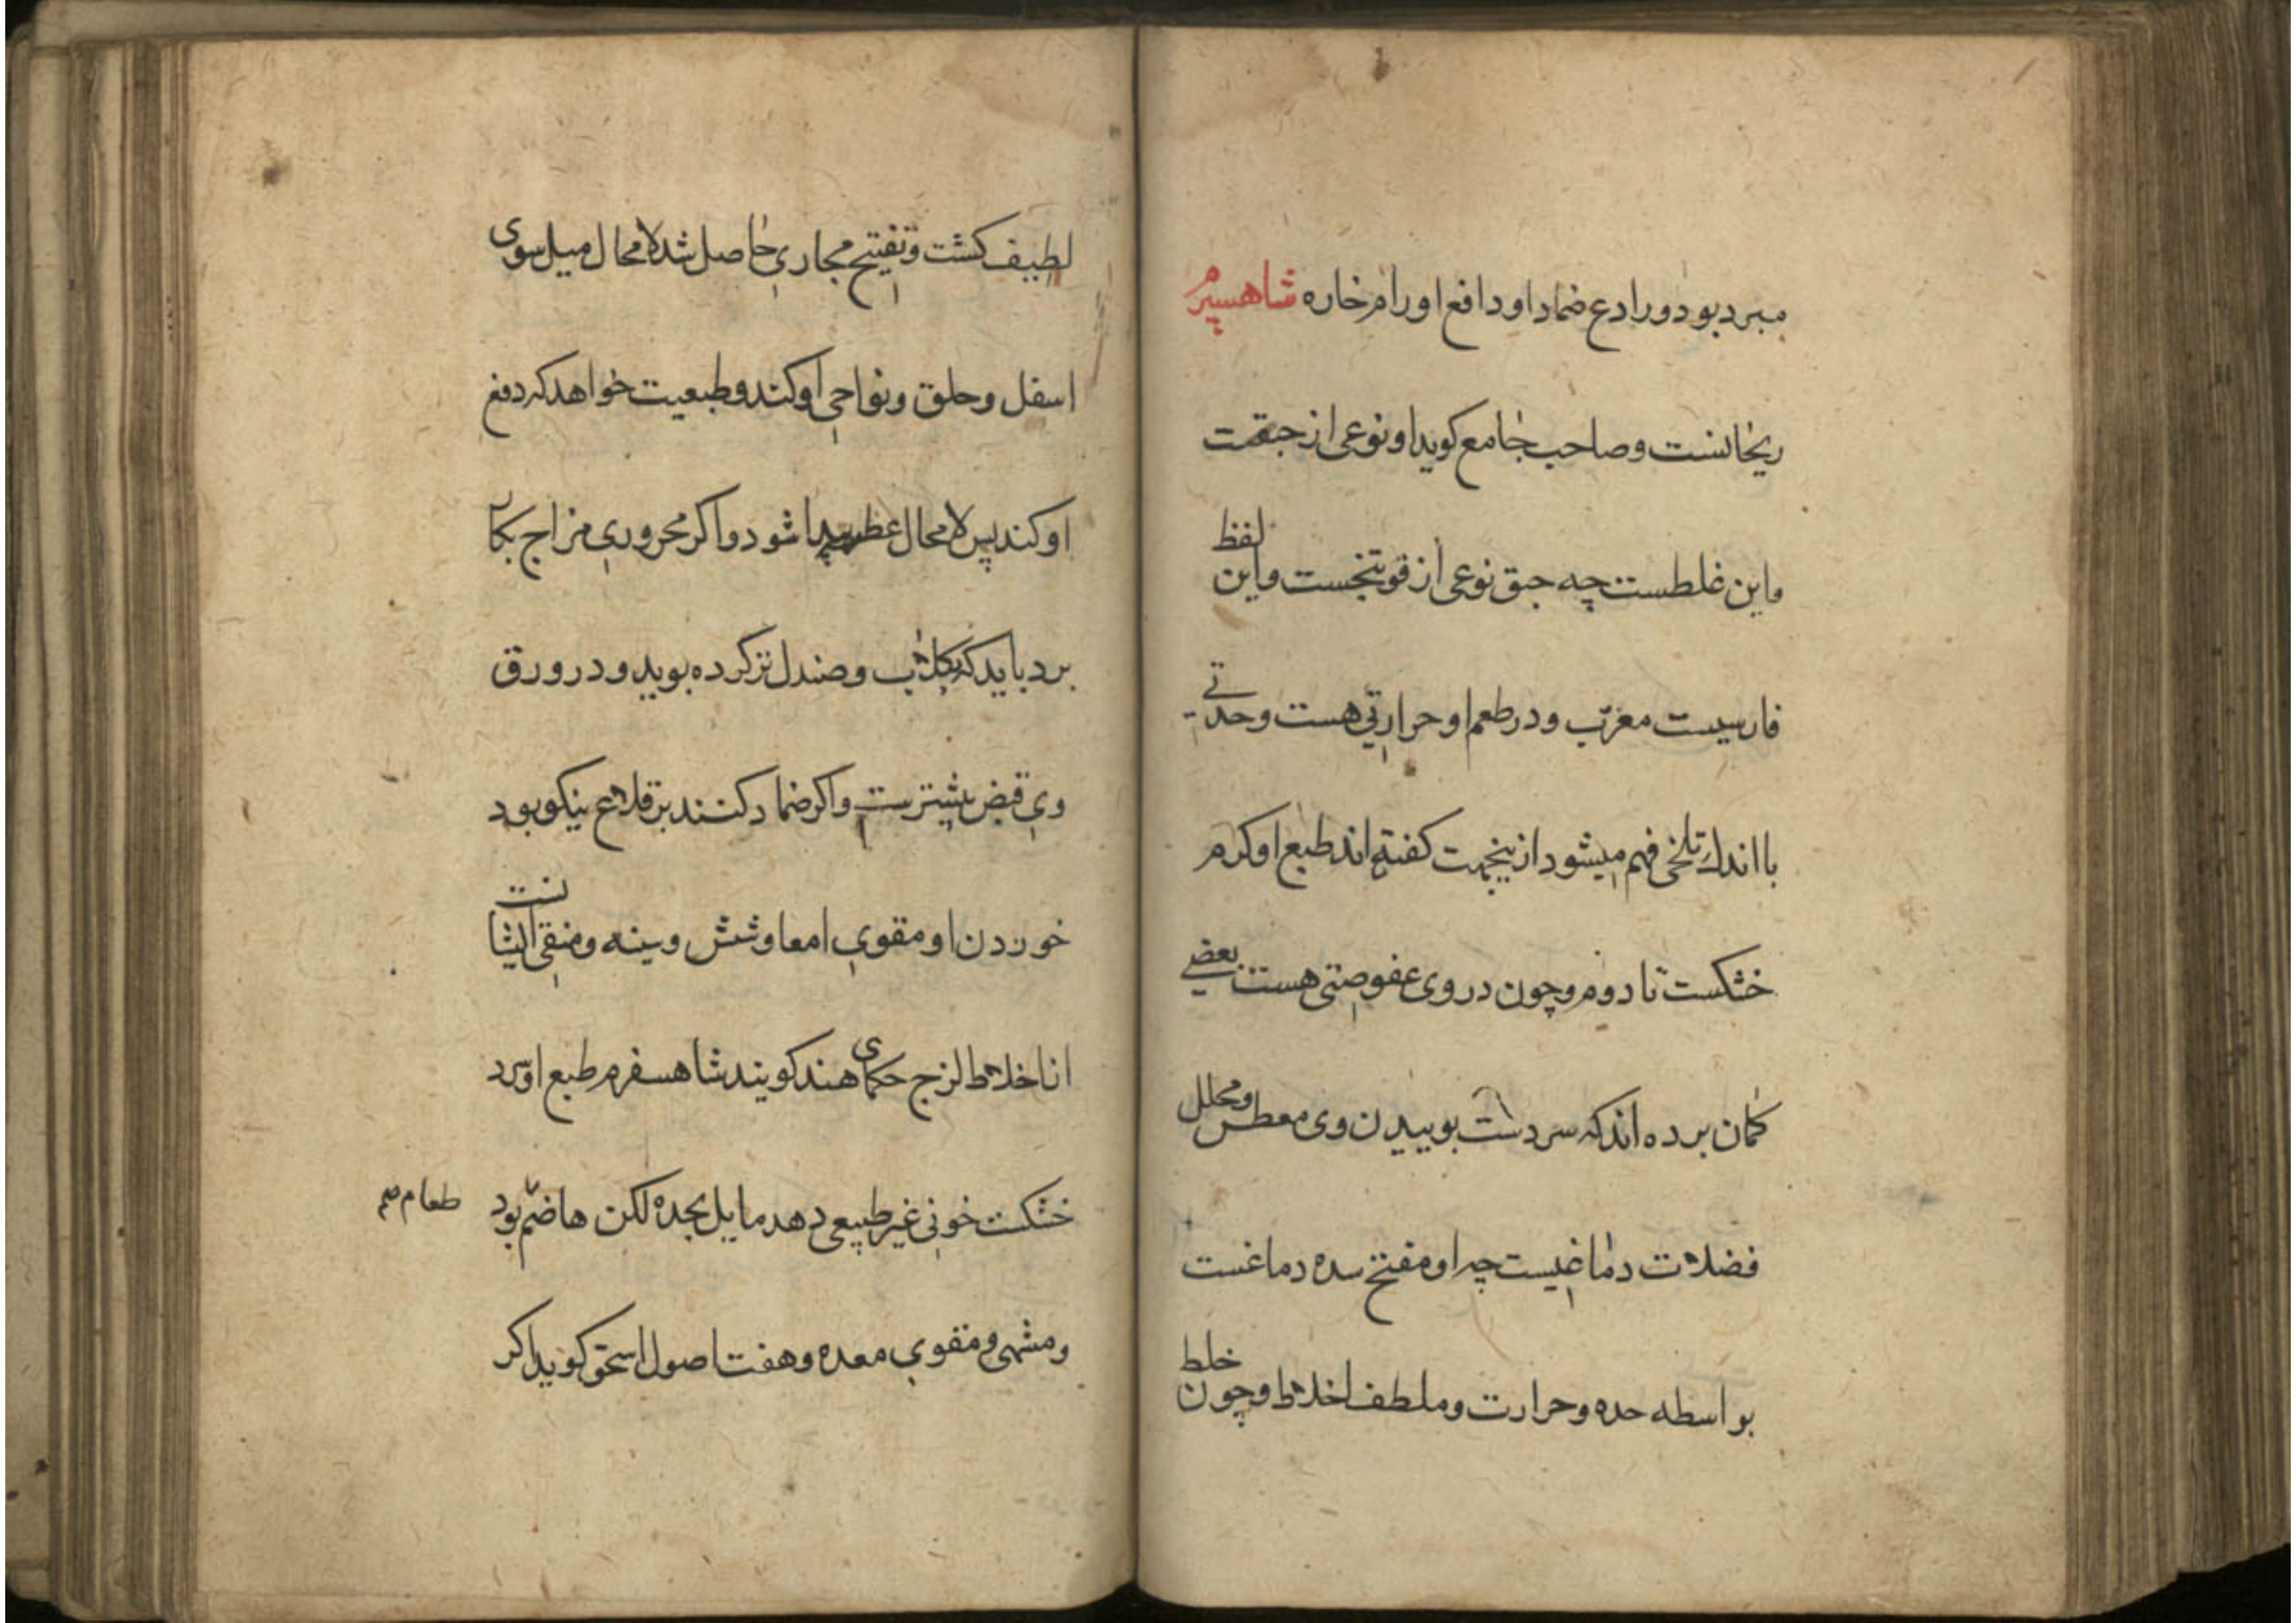 مبرد بود و رادع ضماد او دافع اورام حاره شاهسپرم
ریحانست و صاحب جامع کوید او نوعی از حبقست
و این غلطست چه حبق نوعی از فوتنجست و این لفظ
فارسیست معرّب و در طعم او حرارتی هست و حدتی
با اندك تلخی فهم میشود ازینجهت کفته اند طبع او کرم
خشکست تا دوم و چون در وی عفوصتی هست بعضی
کمان برده اند که سردست بوییدن وی معطس و محلل
فضلات دماغیست چه او مفتح سده دماغست
بواسطه حده و حرارت و ملطف اخلاط و چون خلط
لطیف کشت و تفتیح مجاری حاصل شد لامحال میل سوی
اسفل و حلق و نواحی او کند و طبیعت خواهد که دفع
او کند پس لامحال عطس پیدا شود و اکر محروری مزاج بکار
برد باید که بکلاب و صندل تر کرده بوید و در ورق
وی قبض بیشترست و اکر ضماد کنند بر قلاع نیکو بود
خوردن او مقوی امعا و شش و سینه و منقی ایشانست
از اخلاط لزج حکمای هند کویند شاهسفرم طبع او سرد
خشکست خونی غیر طبیعی دهد مایل بحده لکن هاضم بود
طعام صح
و مشهی و مقوی معده و هفت اصول اسحق کوید اکر